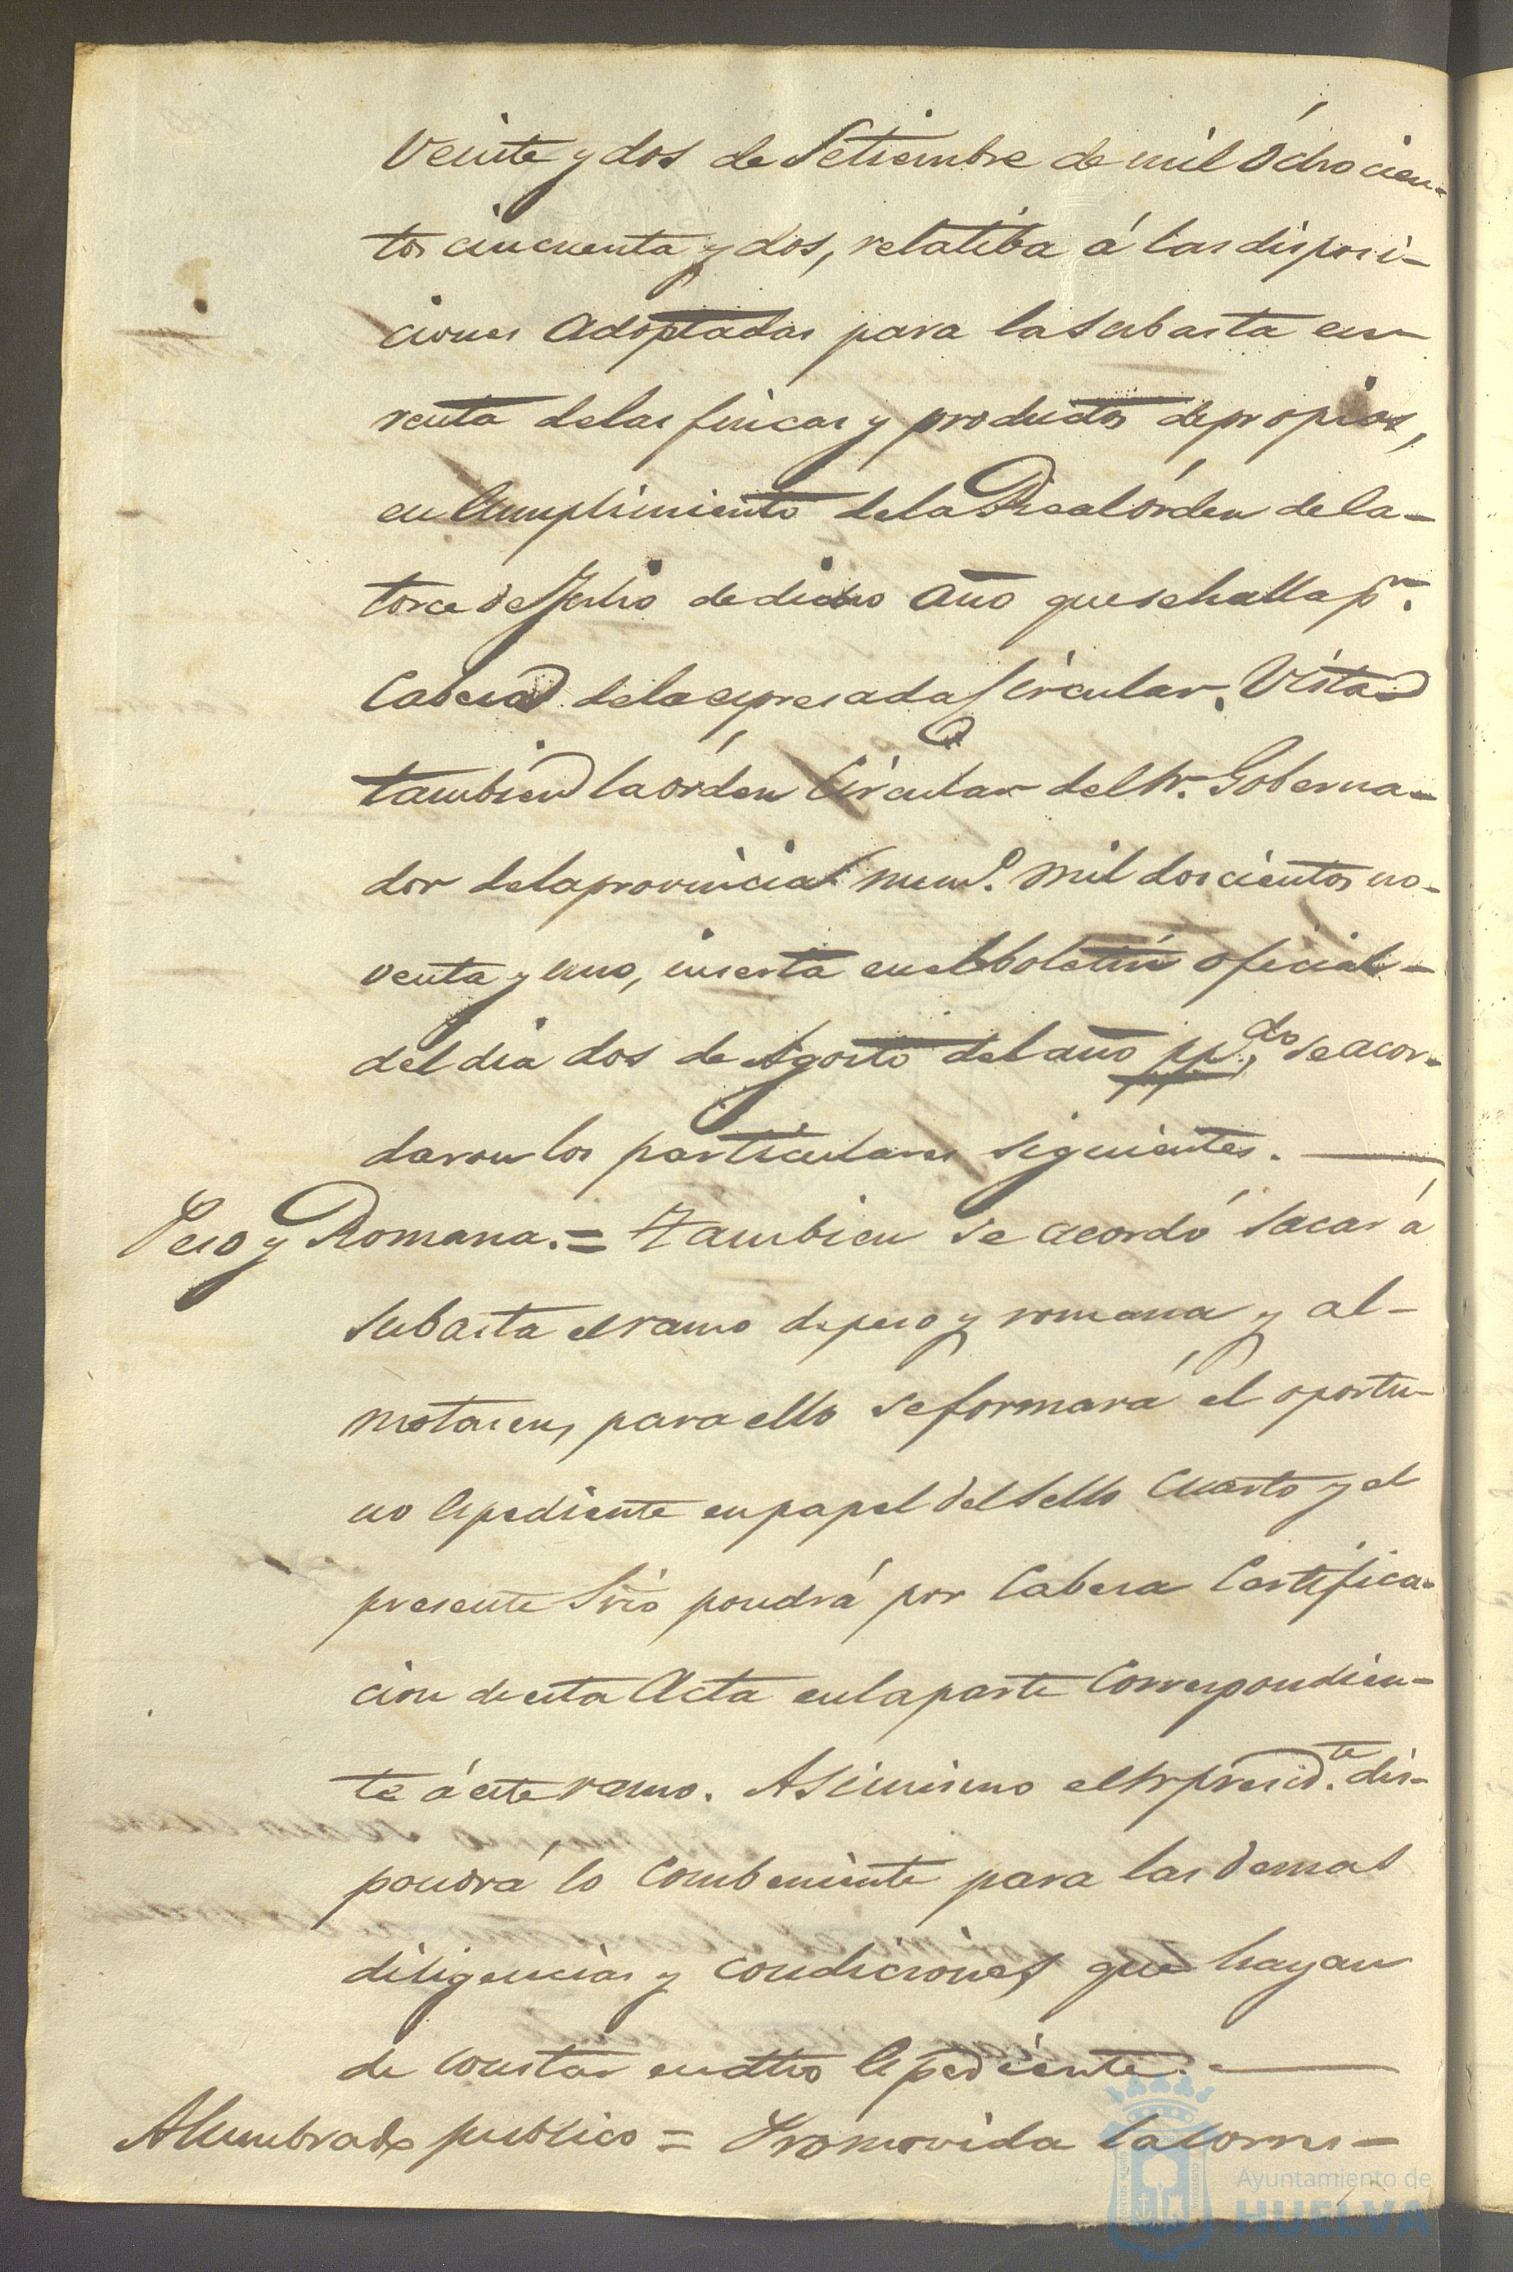 Veinte y dos de Setiembre de mil Ochocien-
tos cincuenta y dos, relatiba á las disposi-
ciones adoptadas para la subasta en
renta de las fincas y productos de propios,
en Cumplimiento de la Real órden de Ca-
torce de Julio de dicho año que se halla pr.
Cabesa de la espresada Circular. Vista
tambien la órden Circular del Sr. Goberna-
dor de la provincia num.o mil doscientos no-
venta y uno, inserta en el boletin oficial
del dia dos de Agosto del año pp.do, se acor-
daron los particulares siguientes.
Peso y Romana. = Tambien se acordó sacar á
subasta el ramo de peso y romana y al-
motasen, para ello se formará el oportu-
no espediente en papel del sello Cuarto y el
presente Srio pondrá por Cabesa Certifica-
cion de esta Acta en la parte Correspondien-
te á este ramo. Asimismo el Sr presid.te dis-
pondrá lo Combeniente para las demas
diligencias y condiciones que hayan
de constar en dho espediente.
Alumbrado publico = Promovida la corres-
Ayuntamiento de
HUELVA